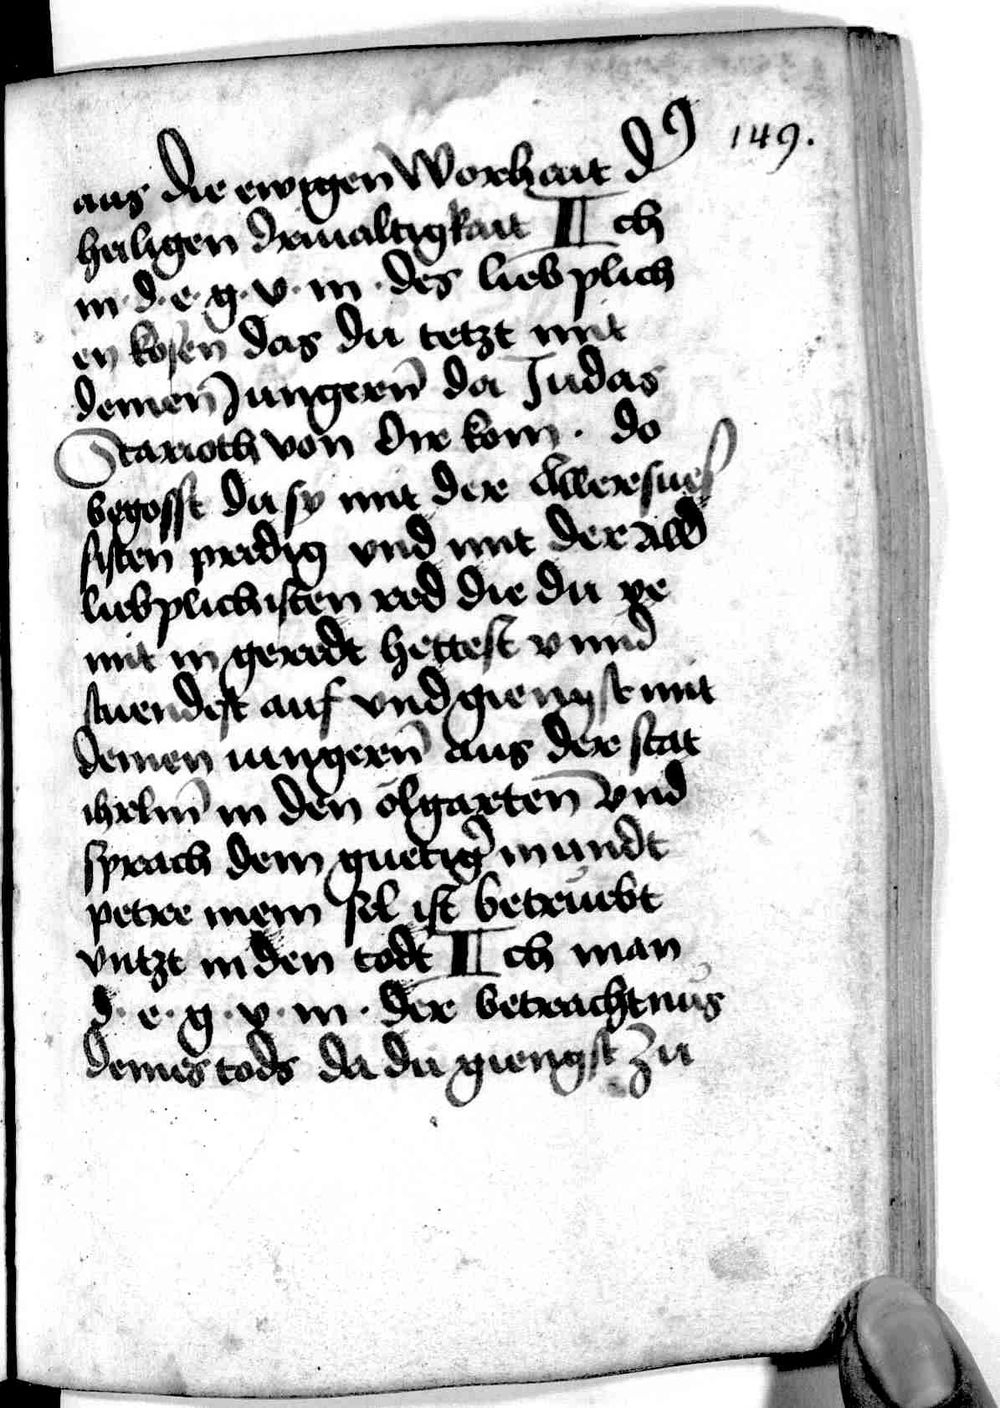 149.
aus die ewigen Worhait d⁹
heiligen driualtigkait Ich
m · d · e · g · v · m · des lieb plich
en kosen das du tetzt mit
deinen Jungern̄ da Judas
Scarioth von dir kom · do
begosst du sy mit der allersues
sisten predig vnd mit der all
lieb plichisten red die du ye
mit in geredt hettest vnnd
stuendest auf vnd giengst mit
deinen iungern̄ aus der stat
ihrlm̄ in den ölgarten̄ vnd
sprach dein guetiḡ mundt
petre mein sel ist betruebt
vntzt in den todt Ich man
d · e · g · v · m · der betrachtnus
deines tods da du giengst zu